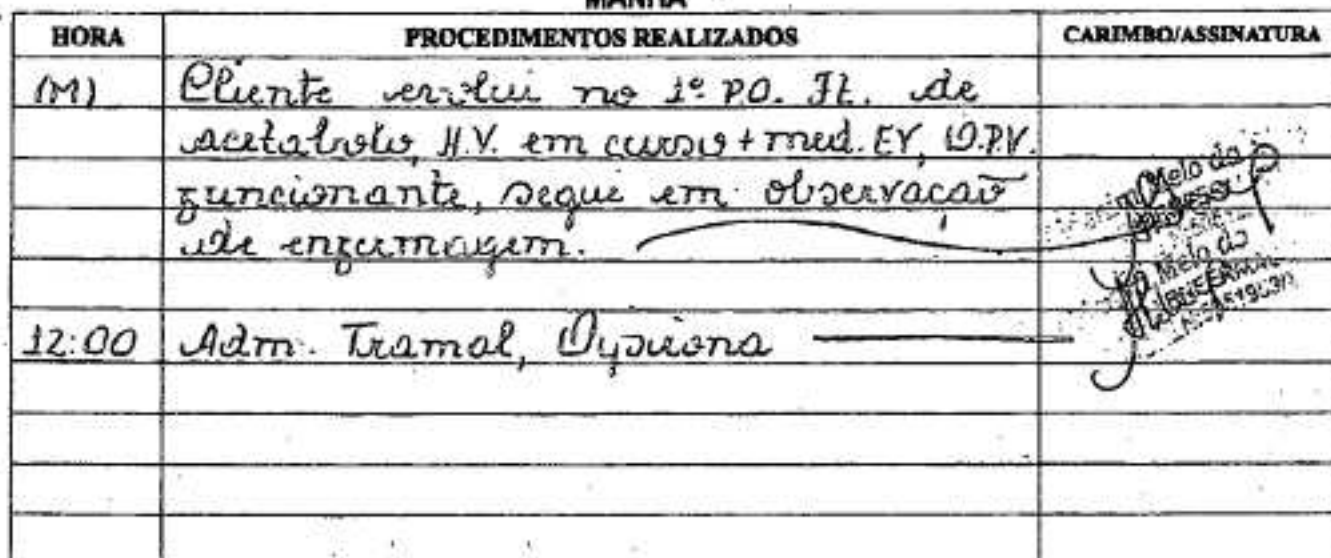 MANHÃ
HORA PROCEDIMENTOS REALIZADOS CARIMBO/ASSINATURA
(M) Cliente evolui no 1º P.O. Ft. de
acetabolo, H.V. em curso + med. EV, D.P.V.
funcionante, segue em observação
de enfermagem.
Melo do
Melo do
12:00 Adm. Tramal, Dypirona